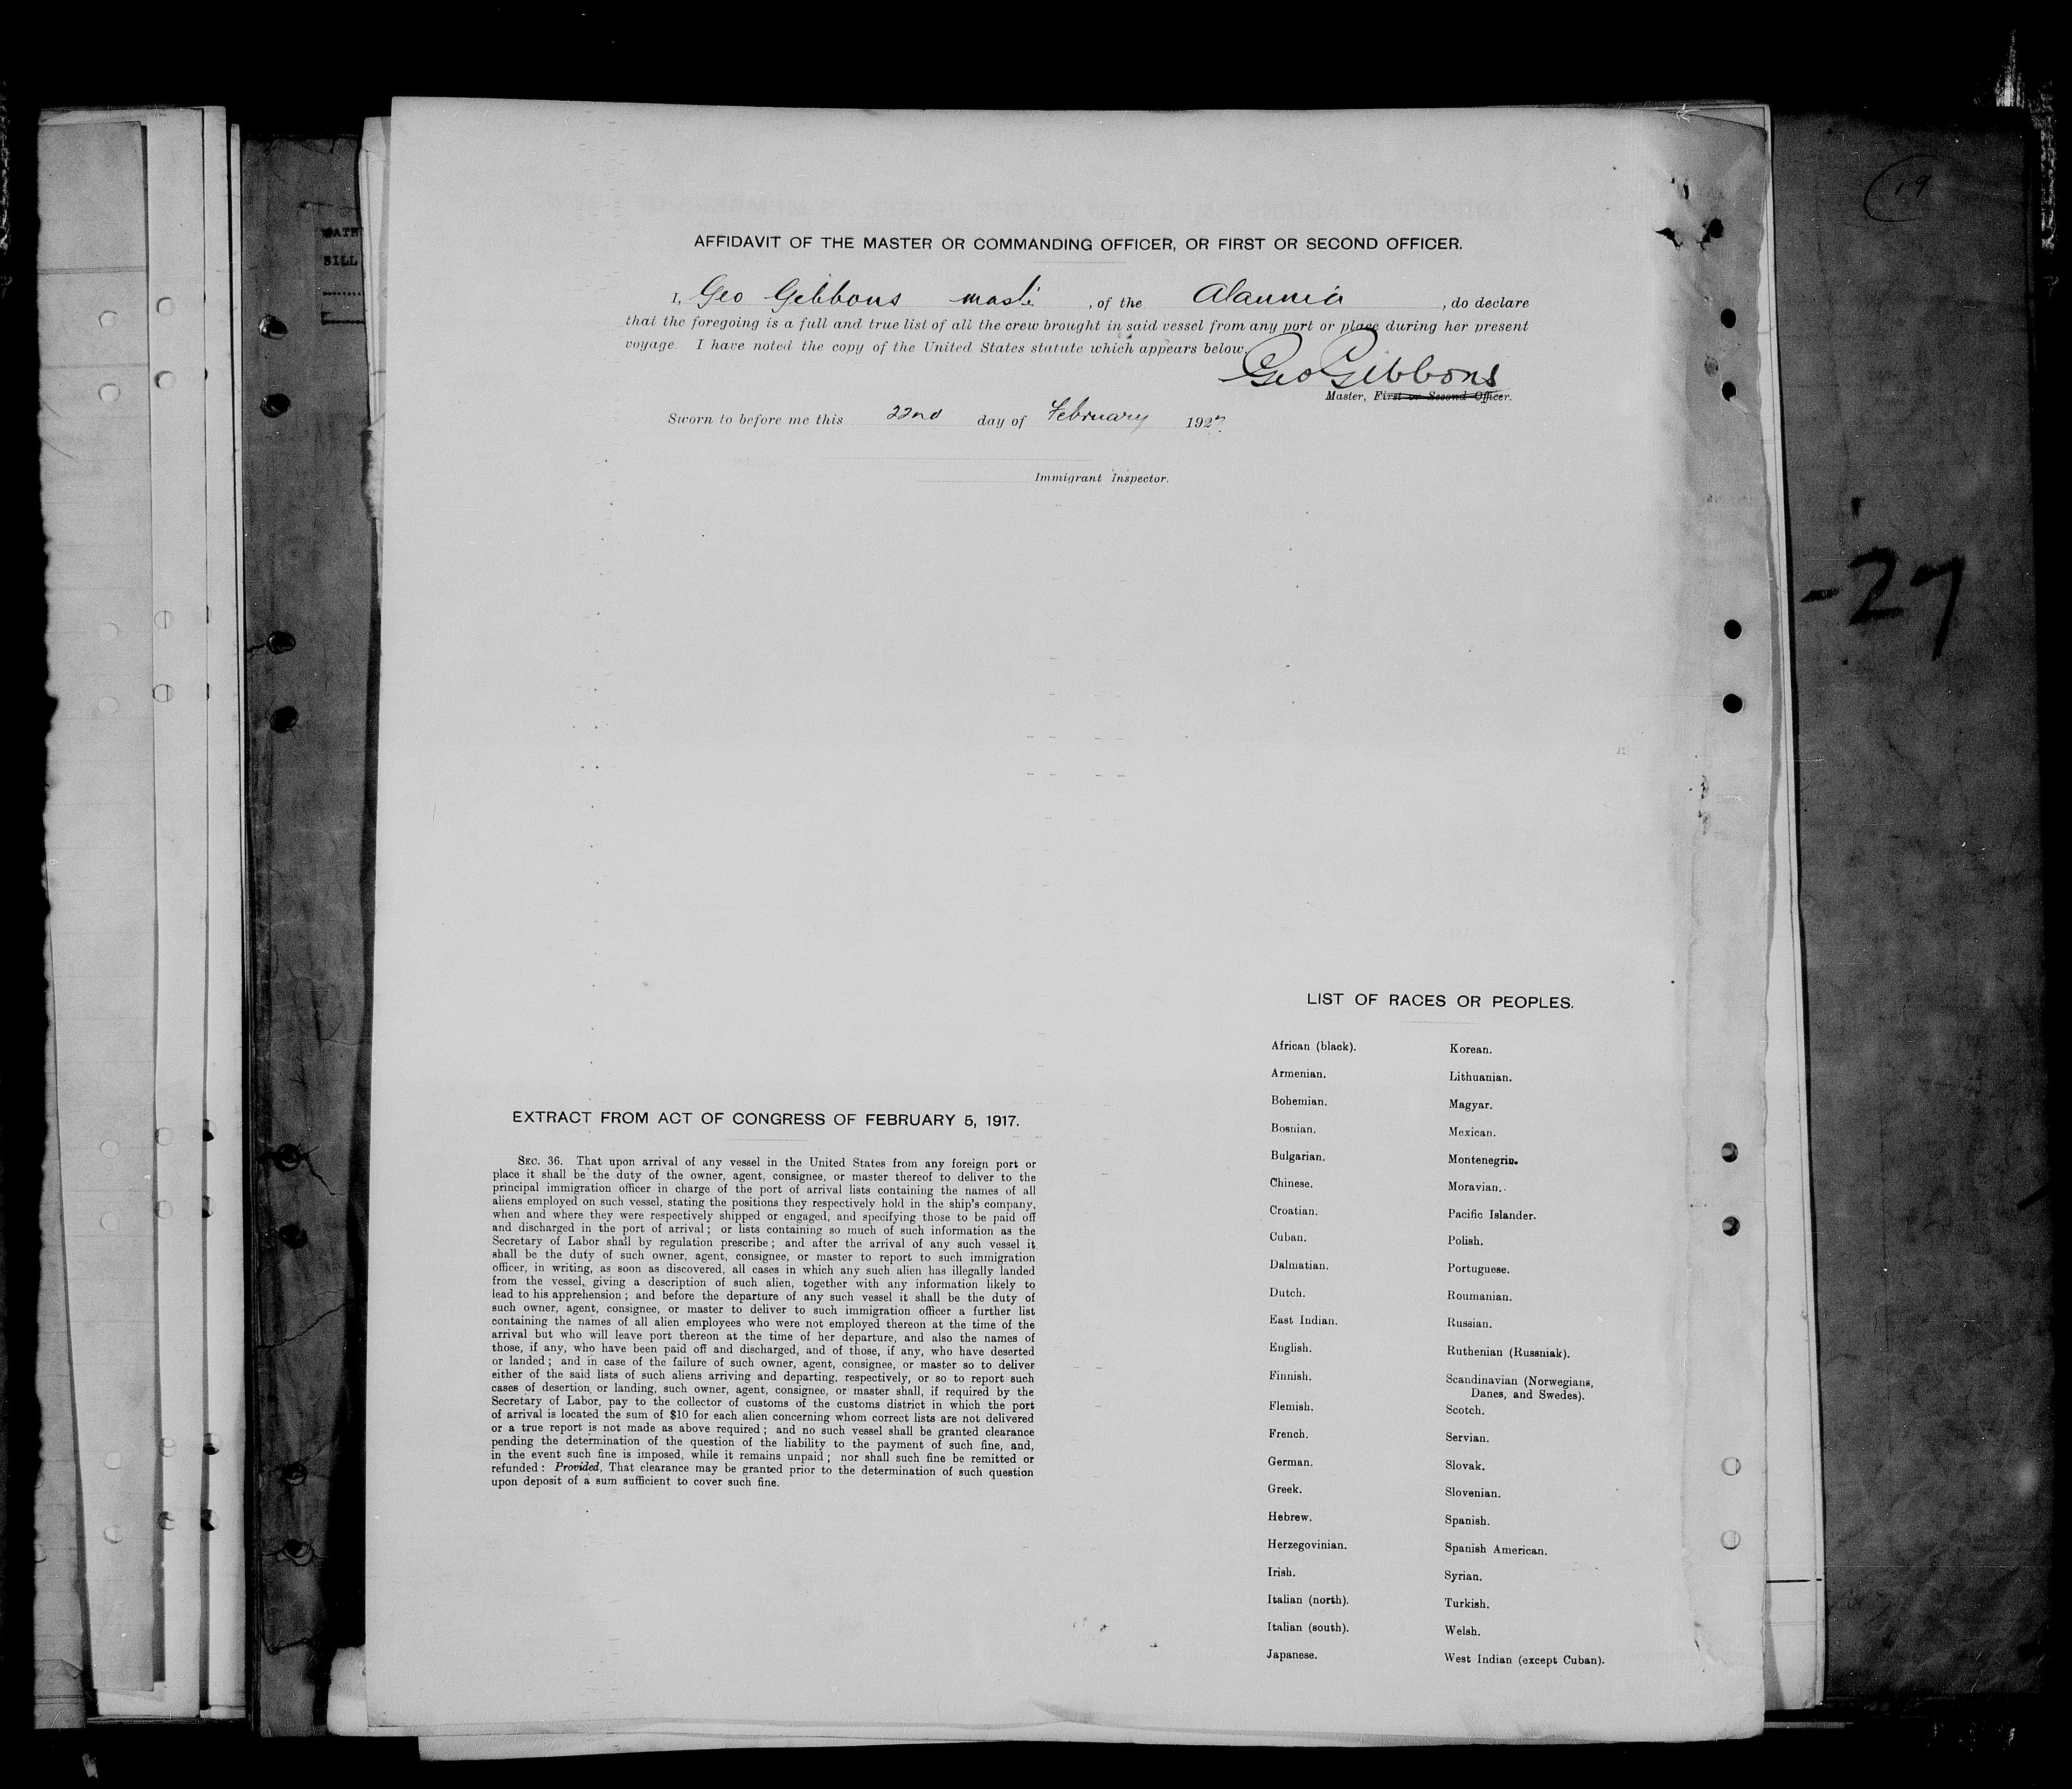 19
-27
DATE
BILL
AFFIDAVIT OF THE MASTER OR COMMANDING OFFICER, OR FIRST OR SECOND OFFICER.
I, Geo Gibbons mast , of the Alaunia , do declare
that the foregoing is a full and true list of all the crew brought in said vessel from any port or place during her present
voyage. I have noted the copy of the United States statute which appears below.
Geo Gibbons
Master, First or Second Officer.
Sworn to before me this 22nd day of February 1927.
Immigrant Inspector.
EXTRACT FROM ACT OF CONGRESS OF FEBRUARY 5, 1917.
SEC. 36. That upon arrival of any vessel in the United States from any foreign port or
place it shall be the duty of the owner, agent, consignee, or master thereof to deliver to the
principal immigration officer in charge of the port of arrival lists containing the names of all
aliens employed on such vessel, stating the positions they respectively hold in the ship's company,
when and where they were respectively shipped or engaged, and specifying those to be paid off
and discharged in the port of arrival; or lists containing so much of such information as the
Secretary of Labor shall by regulation prescribe; and after the arrival of any such vessel it
shall be the duty of such owner, agent, consignee, or master to report to such immigration
officer, in writing, as soon as discovered, all cases in which any such alien has illegally landed
from the vessel, giving a description of such alien, together with any information likely to
lead to his apprehension; and before the departure of any such vessel it shall be the duty of
such owner, agent, consignee, or master to deliver to such immigration officer a further list
containing the names of all alien employees who were not employed thereon at the time of the
arrival but who will leave port thereon at the time of her departure, and also the names of
those, if any, who have been paid off and discharged, and of those, if any, who have deserted
or landed; and in case of the failure of such owner, agent, consignee, or master so to deliver
either of the said lists of such aliens arriving and departing, respectively, or so to report such
cases of desertion or landing, such owner, agent, consignee, or master shall, if required by the
Secretary of Labor, pay to the collector of customs of the customs district in which the port
of arrival is located the sum of $10 for each alien concerning whom correct lists are not delivered
or a true report is not made as above required; and no such vessel shall be granted clearance
pending the determination of the question of the liability to the payment of such fine, and,
in the event such fine is imposed, while it remains unpaid; nor shall such fine be remitted or
refunded: Provided, That clearance may be granted prior to the determination of such question
upon deposit of a sum sufficient to cover such fine.
LIST OF RACES OR PEOPLES.
African (black).
Armenian.
Bohemian.
Bosnian.
Bulgarian.
Chinese.
Croatian.
Cuban.
Dalmatian.
Dutch.
East Indian.
English.
Finnish.
Flemish.
French.
German.
Greek.
Hebrew.
Herzegovinian.
Irish.
Italian (north).
Italian (south).
Japanese.
Korean.
Lithuanian.
Magyar.
Mexican.
Montenegrin.
Moravian.
Pacific Islander.
Polish.
Portuguese.
Roumanian.
Russian.
Ruthenian (Russniak).
Scandinavian (Norwegians,
Danes, and Swedes).
Scotch.
Servian.
Slovak.
Slovenian.
Spanish.
Spanish American.
Syrian.
Turkish.
Welsh.
West Indian (except Cuban).